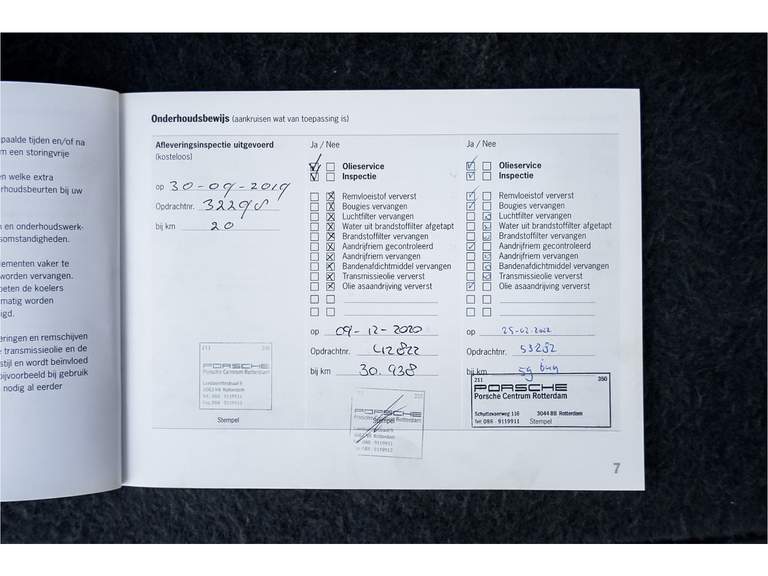 paalde tijden en/of na
m een storingvrije
en welke extra
rhoudsbeurten bij uw
n en onderhoudswerk-
somstandigheden.
ementen vaker te
worden vervangen.
oeten de koelers
matig worden
igd.
eringen en remschijven
e transmissieolie en de
stijl en wordt beïnvloed
bijvoorbeeld bij gebruik
nodig al eerder
Onderhoudsbewijs (aankruisen wat van toepassing is)
Afleveringsinspectie uitgevoerd
(kosteloos)
op 30-09-2019
Opdrachtnr.
bij km 20
211
PORSCHE
Porsche Centrum Rotterdam
Stempel
Ja / Nee
Olieservice
Inspectie
Remvloeistof ververst
Bougies vervangen
Luchtfilter vervangen
Water uit brandstoffilter afgetapt
Brandstoffilter vervangen
Aandrijfriem gecontroleerd
Aandrijfriem vervangen
Bandenafdichtmiddel vervangen
Transmissieolie ververst
Olie asaandrijving ververst
op 09-12-2020
Opdrachtnr. 42822
bij km 30.938
PORSCHE
Stempel
Ja / Nee
Olieservice
Inspectie
Remvloeistof ververst
Bougies vervangen
Luchtfilter vervangen
Water uit brandstoffilter afgetapt
Brandstoffilter vervangen
Aandrijfriem gecontroleerd
Aandrijfriem vervangen
Bandenafdichtmiddel vervangen
Transmissieolie ververst
Olie asaandrijving ververst
op 25-02-2022
Opdrachtnr. 53282
bij km
211 350
PORSCHE
Porsche Centrum Rotterdam
Schuttevaerweg 116 3044 BB Rotterdam
Tel: 088 - 9119911 Stempel
7